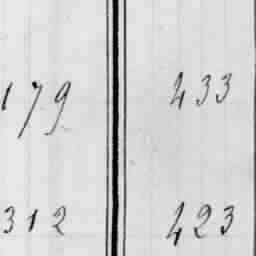 179 433
312 423